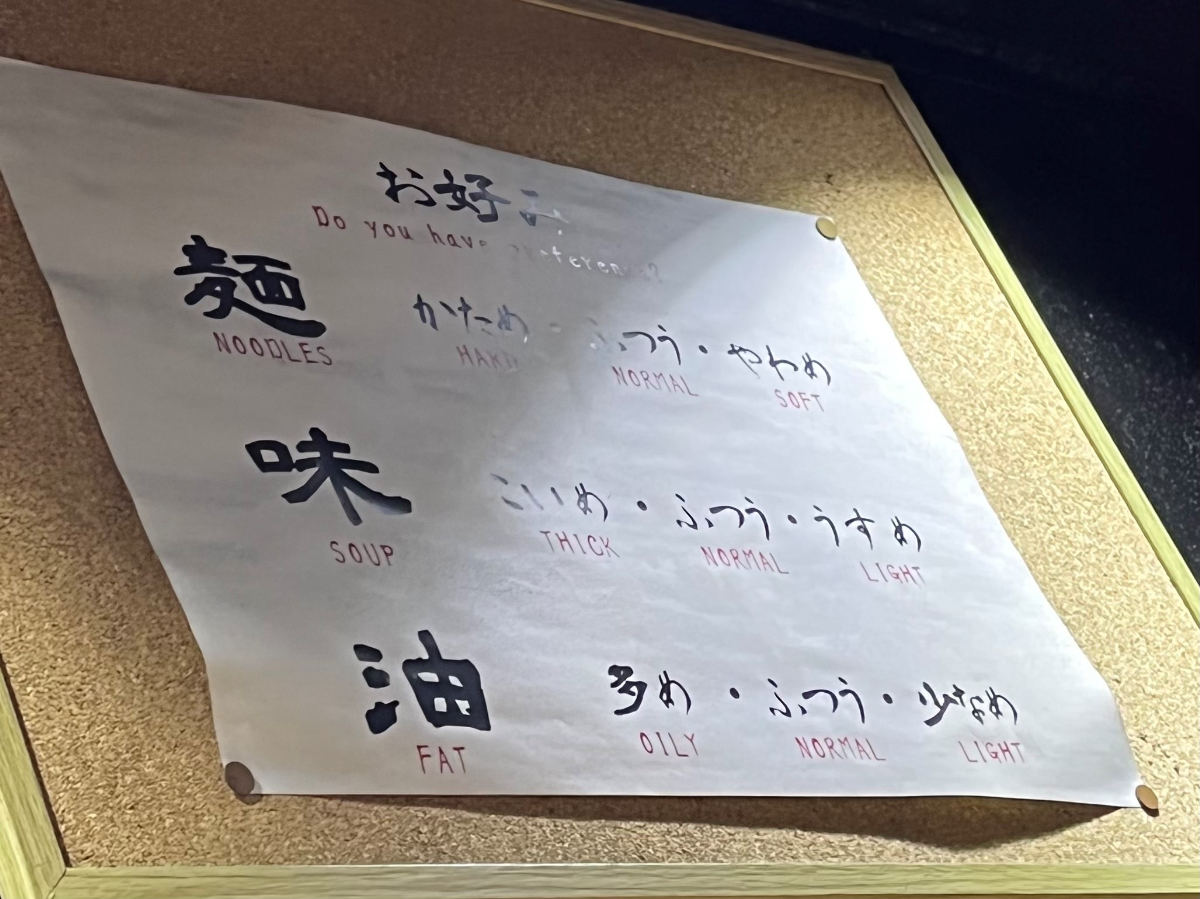 お好み
Do you have preference?
麺 かため・ふつう・やわめ
NOODLES HARD NORMAL SOFT
味 こいめ・ふつう・うすめ
SOUP THICK NORMAL LIGHT
油 多め・ふつう・少なめ
FAT OILY NORMAL LIGHT